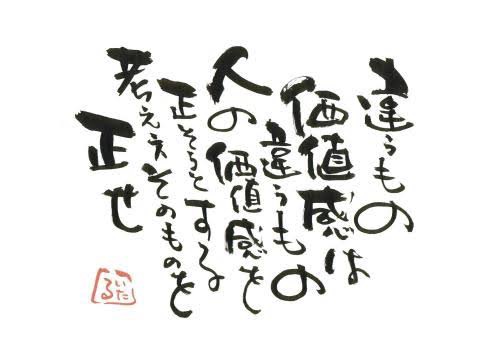 違うもの
価値感は
違うもの
人の価値感を
正そうとする
考ええそのものを
正せ
いたる